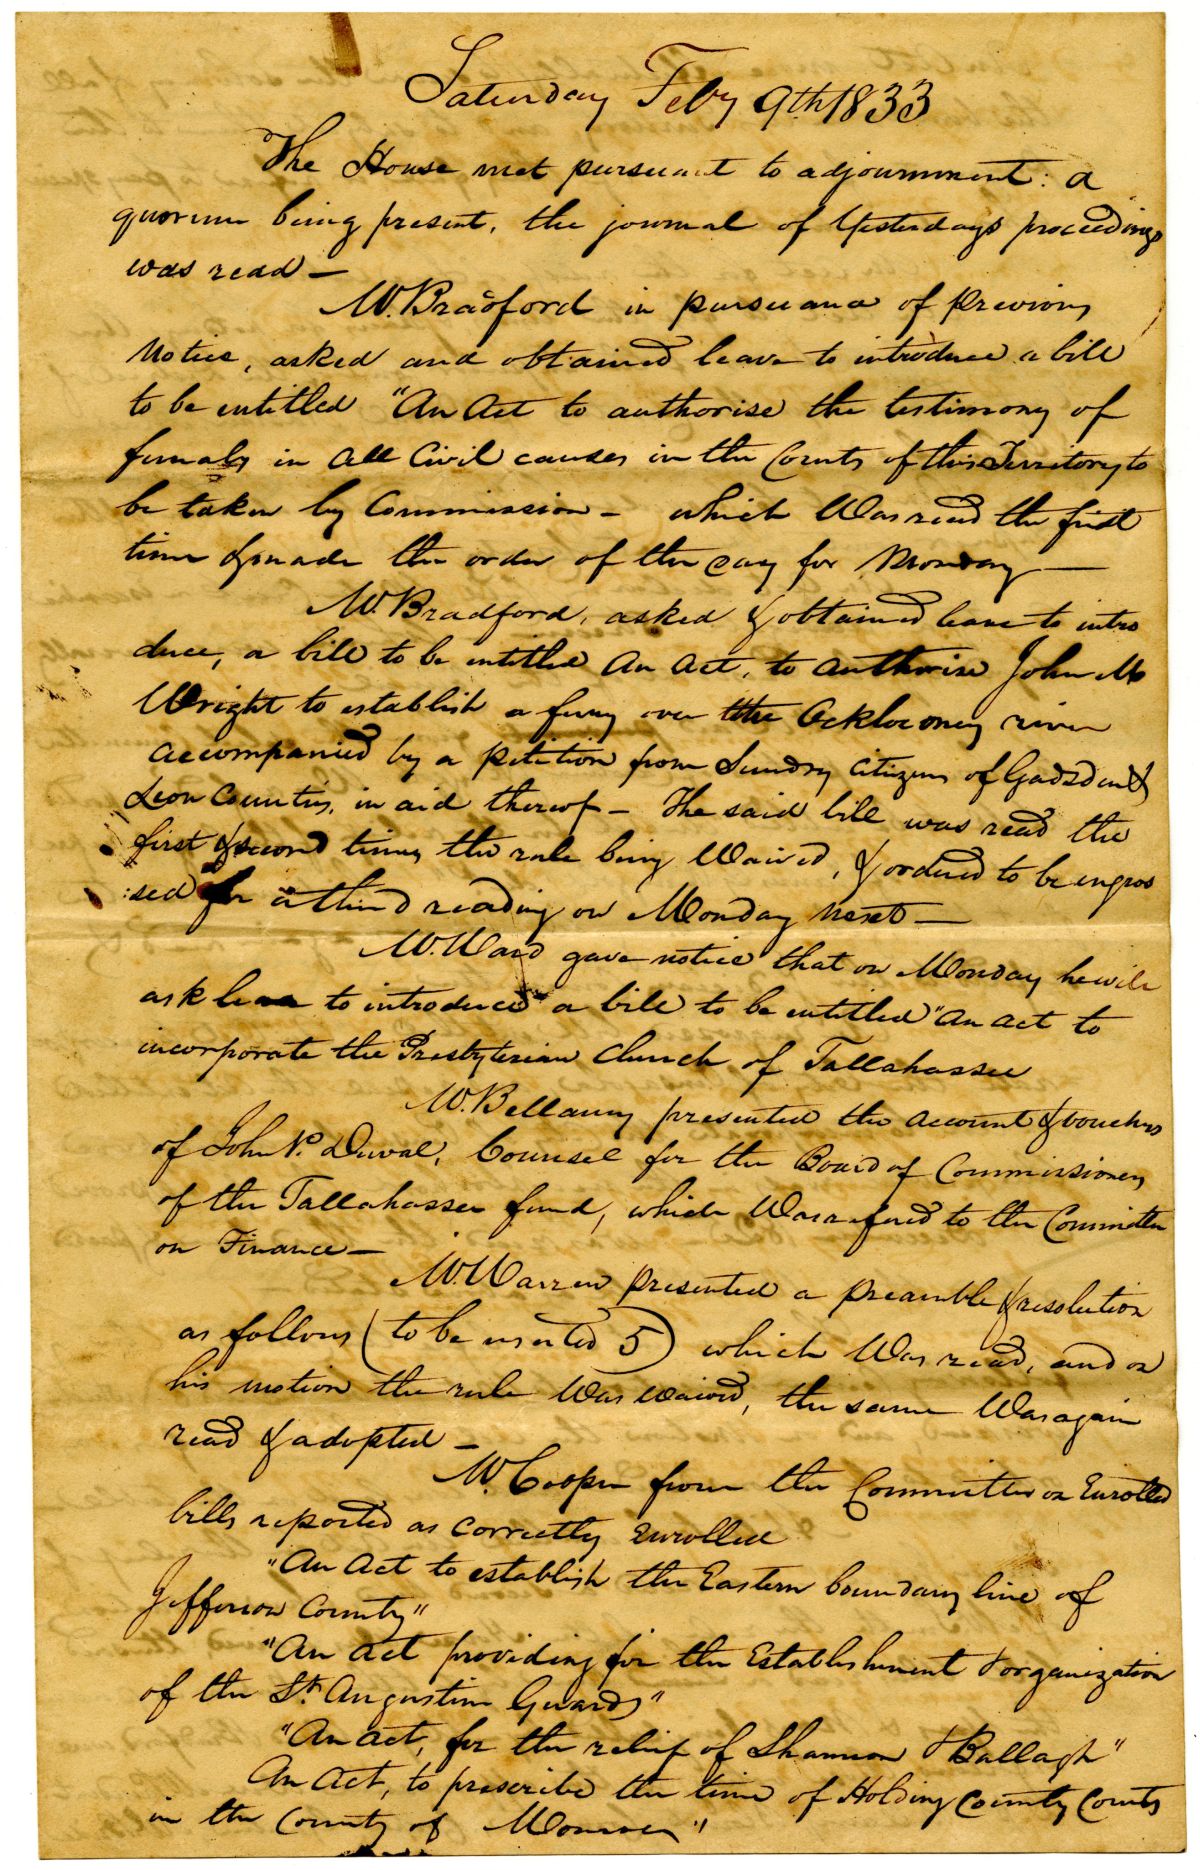 Saturday Feby 9th 1833
The House met pursuant to adjournment: a
quorum being present, the journal of Yesterdays proceedings
was read —
Mr. Bradford in pursuance of previous
Notice, asked and obtained leave to introduce a bill
to be entitled "An Act to authorise the testimony of
females in all Civil causes in the Courts of this Territory to
be taken by Commission — which Was read the first
time & made the order of the day for Monday —
Mr. Bradford, asked & obtained leave to intro
duce, a bill to be entitled An Act, to authorise John M
Wright to establish a ferry over the Ocklockoney river
accompanied by a petition from Sundry Citizens of Gadsden &
Leon Counties, in aid thereof — The said bill was read the
first & second times the rule being Waived, & ordered to be engros
:sed for a third reading on Monday next —
Mr. Ward gave notice that on Monday he will
ask leave to introduce a bill to be entitled "An act to
incorporate the Presbyterian Church of Tallahassee
Mr. Bellamy presented the account & vouchers
of John P. Duval, Counsel for the Board of Commissioners
of the Tallahassee fund, which Was refered to the Committee
on Finance —
Mr. Warren presented a preamble & resolution
as follows (to be inserted 5) which Was read, and on
his motion the rule Was waived, the same Was again
read & adopted —
Mr. Cooper from the Committee on Enrolled
bills reported as correctly enrolled
"An Act to establish the Eastern boundary line of
Jefferson County"
"An act providing for the Establishment & organization
of the St. Augustine Guards"
"An act, for the relief of Shannon & Ballagh"
An Act, to prescribe the time of Holding County Courts
in the County of Monroe"